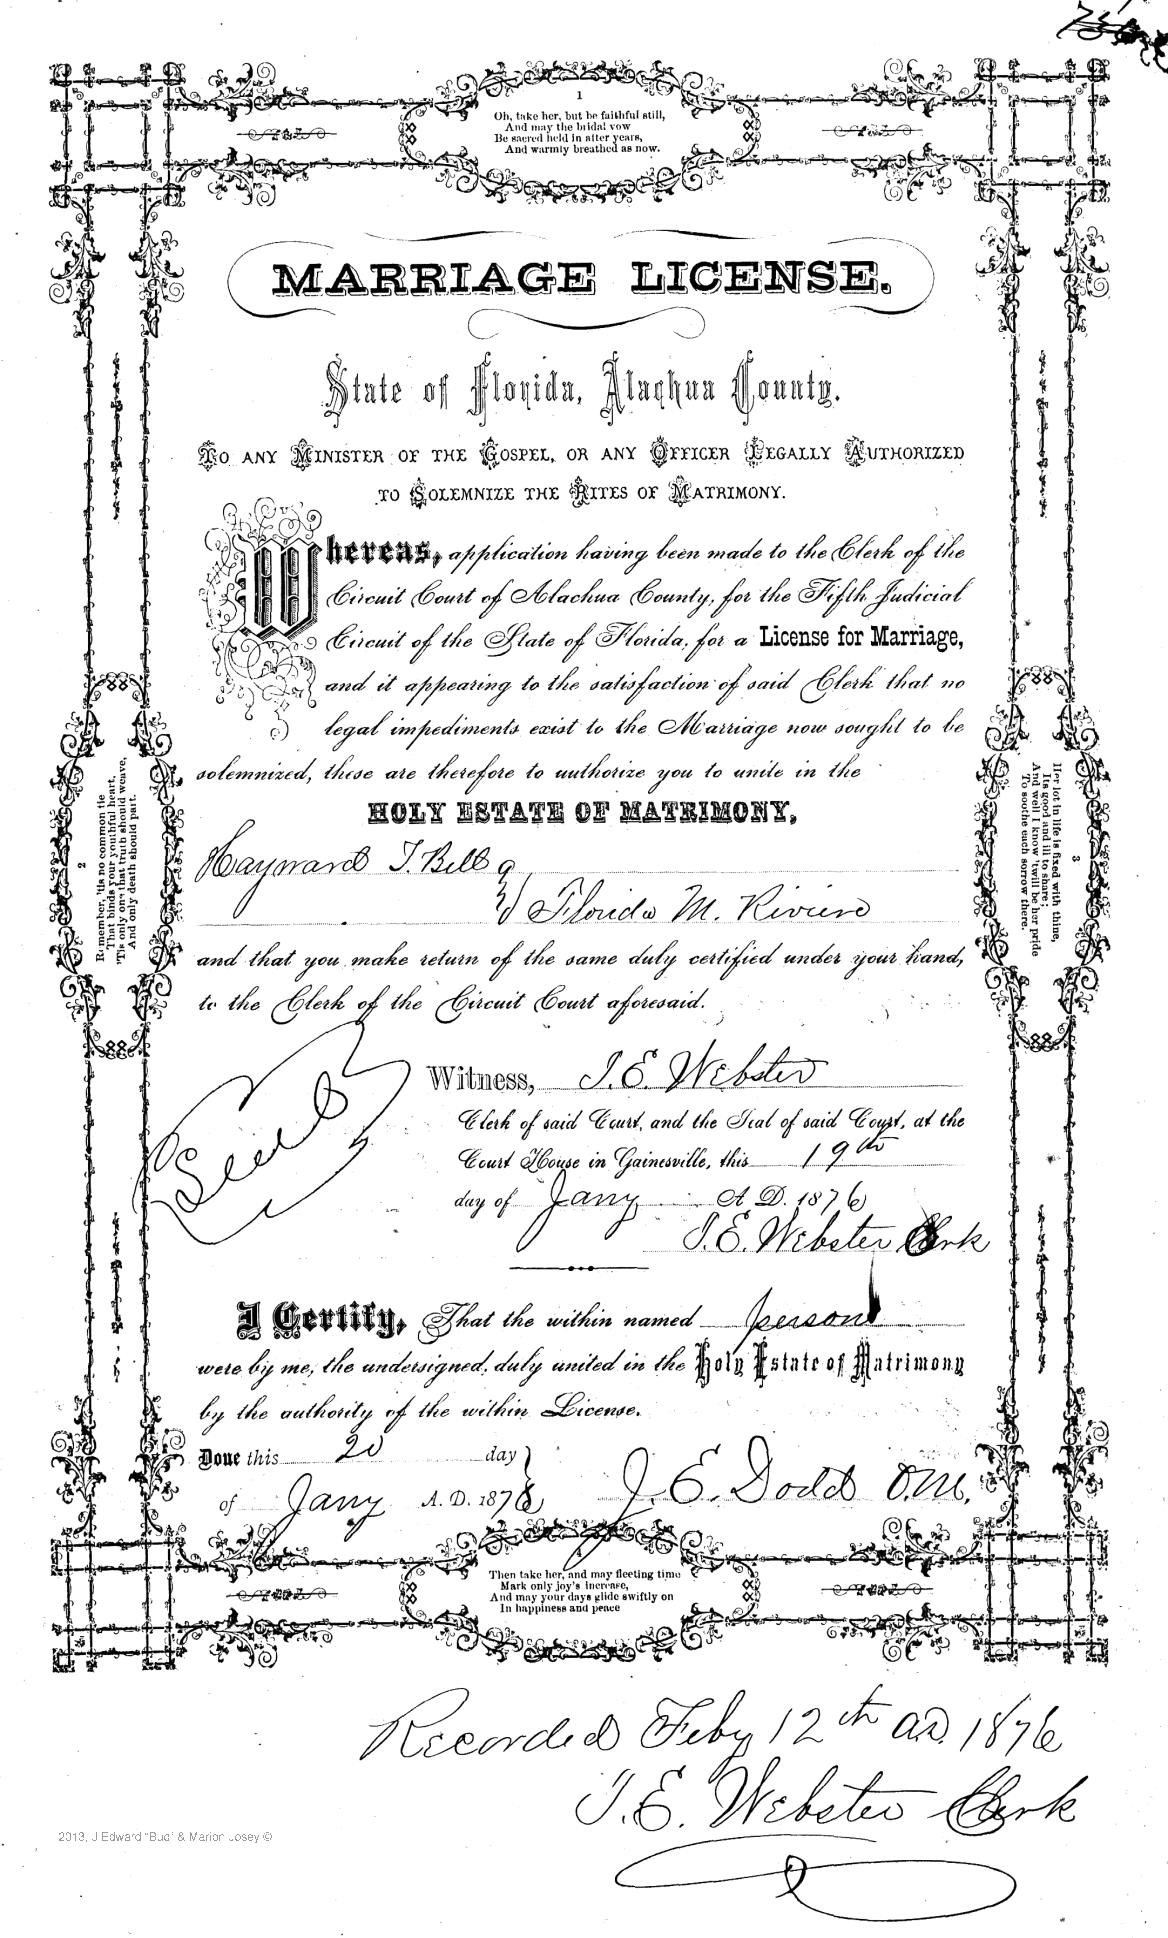 1
Oh, take her, but be faithful still,
And may the bridal vow
Be sacred held in after years,
And warmly breathed as now.
MARRIAGE LICENSE.
State of Florida, Alachua County.
To any Minister of the Gospel, or any Officer Legally Authorized
to Solemnize the Rites of Matrimony.
Whereas, application having been made to the Clerk of the
Circuit Court of Alachua County, for the Fifth Judicial
Circuit of the State of Florida, for a License for Marriage,
and it appearing to the satisfaction of said Clerk that no
legal impediments exist to the Marriage now sought to be
solemnized, these are therefore to authorize you to unite in the
HOLY ESTATE OF MATRIMONY,
Hayward T. Bell
Florida M. Riviere
and that you make return of the same duly certified under your hand,
to the Clerk of the Circuit Court aforesaid.
Seal
Witness, J. E. Webster
Clerk of said Court, and the Seal of said Court, at the
Court House in Gainesville, this 19th
day of Jany A. D. 1876
J. E. Webster Clerk
I Certify, That the within named persons
were by me, the undersigned, duly united in the Holy Estate of Matrimony
by the authority of the within License.
Done this 20 day
of Jany A. D. 1876
J. E. Dodd O.M.
2
Remember, 'tis no common tie
That binds your youthful heart,
'Tis only one that truth should weave,
And only death should part.
3
Her lot in life is fixed with thine,
Its good and ill to share;
And well I know 'twill be her pride
To soothe each sorrow there.
Then take her, and may fleeting time
Mark only joy's increase,
And may your days glide swiftly on
In happiness and peace
Recorded Feby 12th A.D. 1876
J. E. Webster Clerk
2013, J Edward "Bud" & Marion Josey ©